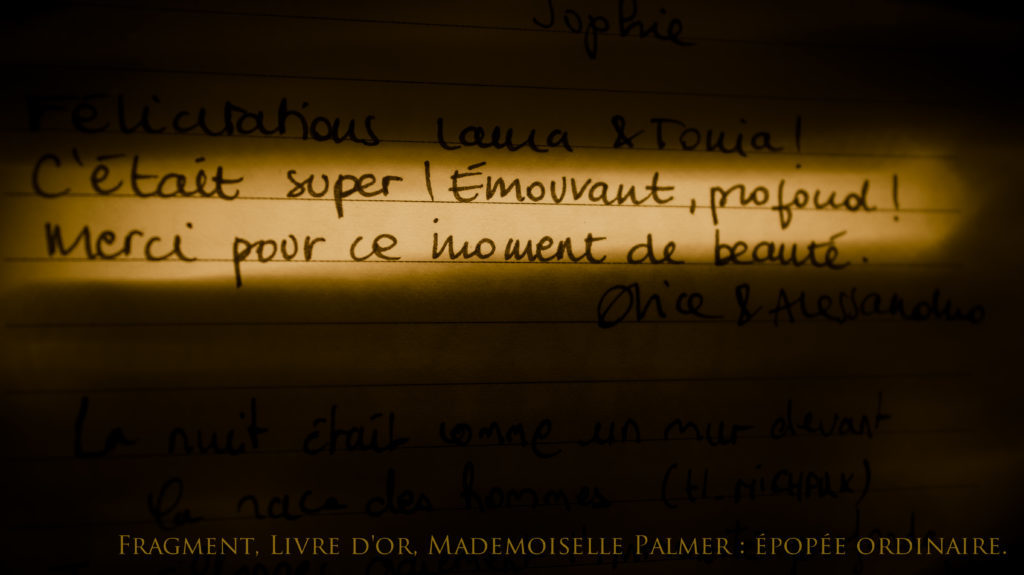 Sophie
Félicitations Laura & Tonia !
C'était super ! Émouvant, profond !
Merci pour ce moment de beauté.
& Alessandro
La nuit était comme un mur devant
la race des hommes (H. MICHAUX)
FRAGMENT, LIVRE D'OR, MADEMOISELLE PALMER : ÉPOPÉE ORDINAIRE.